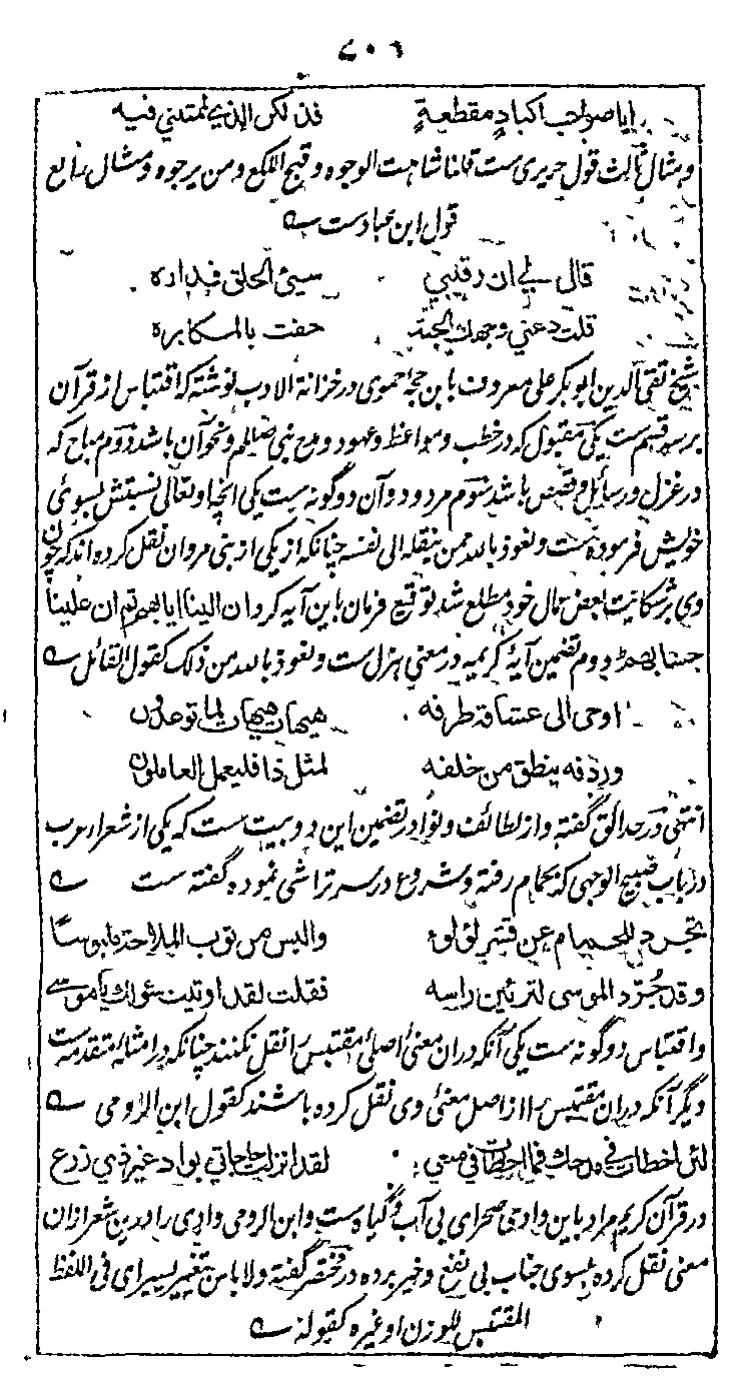 ٤٠٦
ايا صواحب اكبادٍ مقطعةٍ فذلكن الذي لمتنني فيه
ومثال ثالث قول حریری ست قلنا شاهت الوجوه وقبح اللكع ومن یرجوه ومثال رابع
قول ابن عبادست ے
قال لي ان رقيبي سيئ الخلق فداره
قلت دعني وجهك الجنة حفت بالمكاره
شیخ تقی الدین ابو بکر علی معروف بابن حجهٔ حموی در خزانة الادب نوشته که اقتباس از قرآن
بر سه قسم ست یکی مقبول که در خطب و مواعظ و عهود و مدح نبی صلیلم و نحو آن باشد دوم مباح که
در غزل و رسائل و قصص باشد سوم مردود و آن دو گونه ست یکی انچه او تعالی نسبتش بسوی
خویش فرموده ست و نعوذ بالله ممن ینقله الی نفسه چنانکه از یکی از بنی مروان نقل کرده اند که چون
وی بر شکایت بعض عمال خود مطلع شد توقیع فرمان باین آیه کرد ان الینا ایابهم ثم ان علینا
حسابهم دوم تضمین آیهٔ کریمه در معنی هزل ست و نعوذ بالله من ذلك کقول القائل ے
اوحى الى عشاقه طرفه هيهات هيهات لما توعدون
وردفه ينطق من خلفه لمثل ذا فليعمل العاملون
انتهی در حدائق گفته و از لطائف و نوادر تضمین این دو بیت ست که یکی از شعراء عرب
در باب صبیح الوجهی که بحمام رفته و شروع در سر تراشی نموده گفته ست ے
تجرد للحمام عن قشر لؤلؤ والبس من ثوب الملاحة ملبوسًا
وقد جُرّد الموسى لتزئين راسه فقلت لقد اوتيت سؤلك يا موسى
و اقتباس دو گونه ست یکی آنکه در ان معنی اصلی مقتبس را نقل نکنند چنانکه در امثلهٔ متقدمه ست
دیگر آنکه در ان مقتبس را از اصل معنی وی نقل کرده باشند کقول ابن الرومی ے
لئن اخطات في مدحك فما اخطات في منعي لقد انزلت حاجاتي بواد غير ذي زرع
در قرآن کریم مراد باین وادی صحرای بی آب و گیاه ست و ابن الرومی وادی را درین شعر ازان
معنی نقل کرده بسوی جناب بی نفع و خیر برده در مختصر گفته ولا باس بتغییر یسیر ای فی اللفظ
المقتبس للوزن او غیره کقوله ے